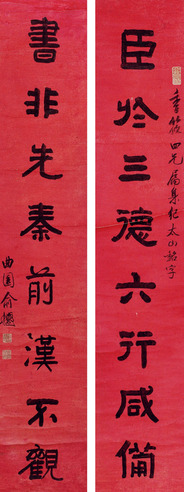 臣於三德六行咸備
香篠四兄屬集紀太山銘字
書非先秦前漢不觀
曲園俞樾